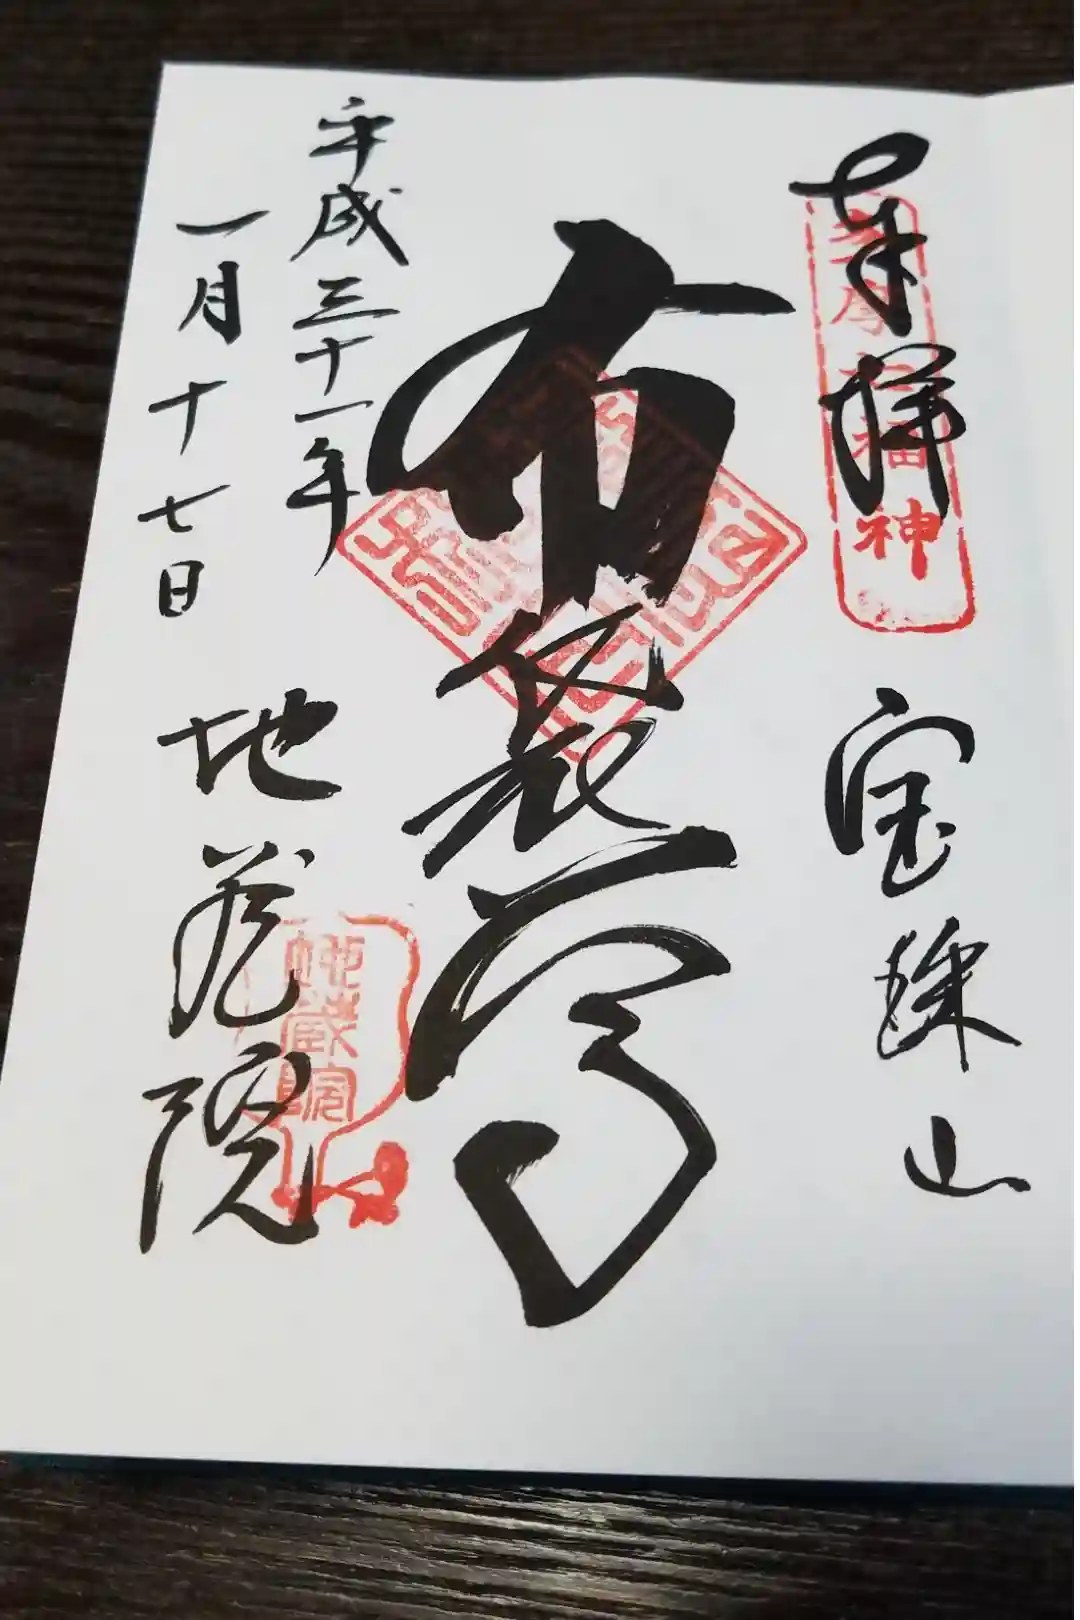 奉拝
多摩七福神
宝珠山
布袋尊
平成三十一年
一月十七日
地蔵院
地蔵院